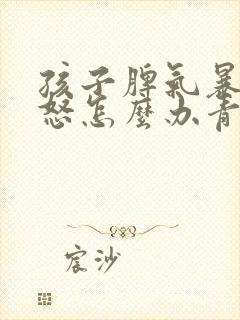 孩子脾气暴
怒怎麼办青
宸沙